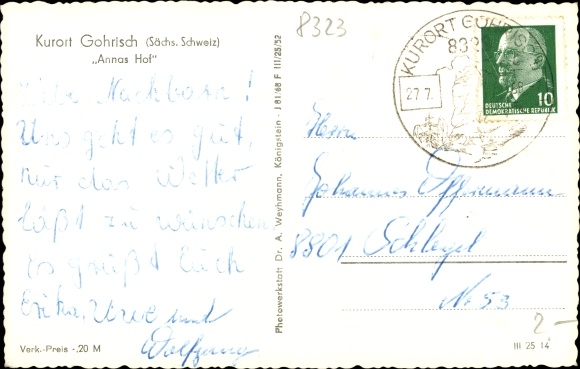 Kurort Gohrisch (Sächs. Schweiz)
„Annas Hof"
Liebe Nachbarn!
Uns geht es gut,
nur das Wetter
läßt zu wünschen
Es grüßt Euch
Erika, Uwe und
Wolfgang
Verk.-Preis -,20 M
Photowerkstatt Dr. A. Weyhmann, Königstein - J 81/68 F III/25/52
8323
KURORT GOHRISCH
8323
27.7.
DEUTSCHE
DEMOKRATISCHE REPUBLIK
10
Herrn
Johannes
8801 Schlegel
Nr 53
2-
III 25 14